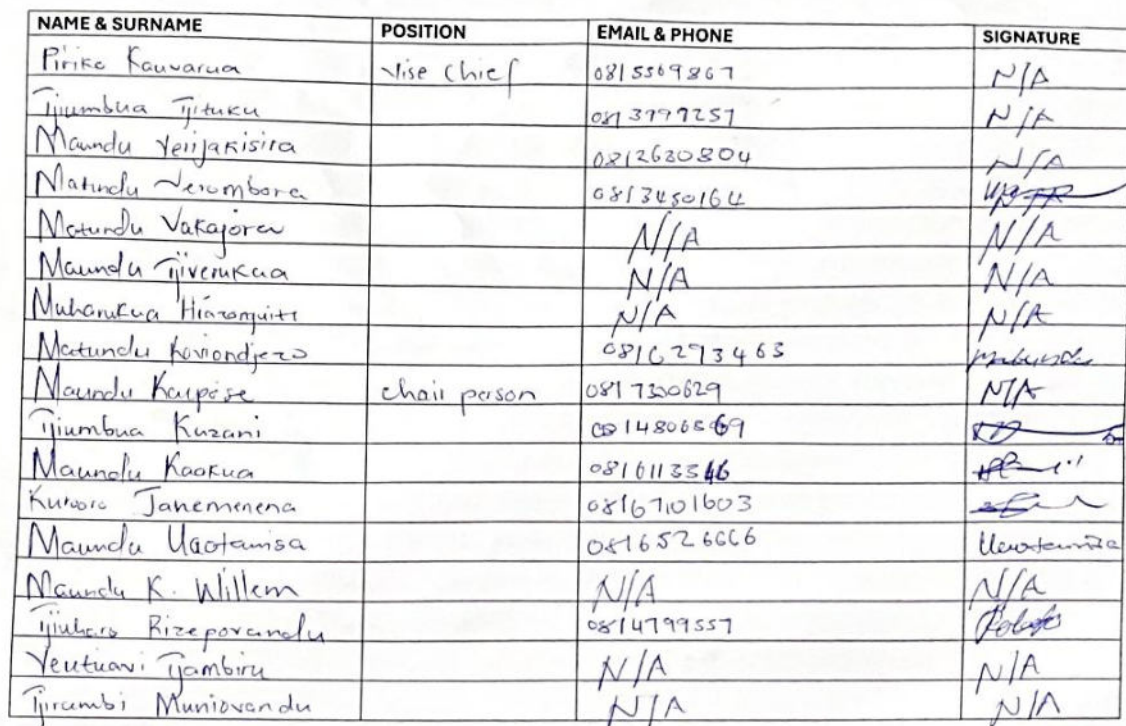 NAME & SURNAME POSITION EMAIL & PHONE SIGNATURE
Piriko Kauvarua Vise Chief 0815569867 N/A
Tjiumbua Tjituku 0813999257 N/A
Maundu Verijakisira 0812630804 N/A
Matundu Verombora 0813450164
Matundu Vakajorev N/A N/A
Maundu Tjiverukua N/A N/A
Muharukua N/A N/A
Matundu Koviondjezo 0816293463 Matundu
Maundu Kaupose chair person 0817330629 N/A
Tjiumbua Kuzani
Maundu Kaokua
Kuroro Janemenena 08167101603
Maundu Uaotamisa 0816526666 Uaotamisa
Maundu K. Willem N/A N/A
Tjiuharo Rizeporandu 0814799557
Veutuavi Tjambiru N/A N/A
Tjirambi Muniovandu N/A N/A